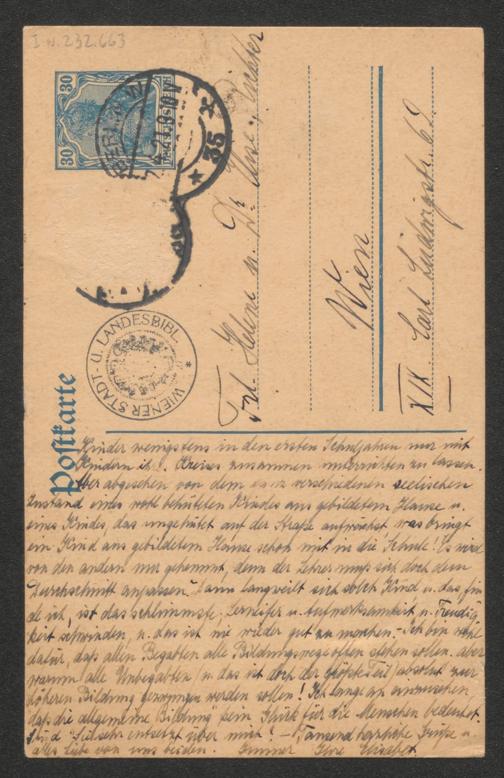 I.N. 232.663
30
30
Postkarte
WIENER STADT- U. LANDESBIBL.
BERLIN
35
Frl. Helene u. Dr. Elise Richter
Wien
XIX Carl Ludwigstr. 69
Kinder wenigstens in den ersten Schuljahren nur mit
Kindern ihres Kreises zusammen unterrichten zu lassen.
Aber abgesehen von dem ganz verschiedenen seelischen
Zustand eines wohl behüteten Kindes aus gebildetem Hause u.
eines Kindes, das ungehütet auf der Straße aufwächst, was bringt
ein Kind aus gebildetem Hause schon mit in die Schule! Es wird
von den andern nur gehemmt, denn der Lehrer muß sich doch dem
Durchschnitt anpassen. Dann langweilt sich solch Kind u. das, fin-
de ich, ist das schlimmste, Lerneifer u. Aufmerksamkeit u. Freudig-
keit schwinden, u. das ist nie wieder gut zu machen. - Ich bin wohl
dafür, daß allen Begabten alle Bildungswege offen stehen sollen, aber
warum alle Unbegabten (u. das ist doch der größte Teil) absolut zur
höheren Bildung gezwungen werden sollen! Ich fange an einzusehen,
daß die allgemeine Bildung kein Glück für die Menschen bedeutet.
Sind Sie sehr entsetzt über mich? - Tausend herzliche Grüße u.
alles Liebe von uns beiden. Immer Ihre Elisabet